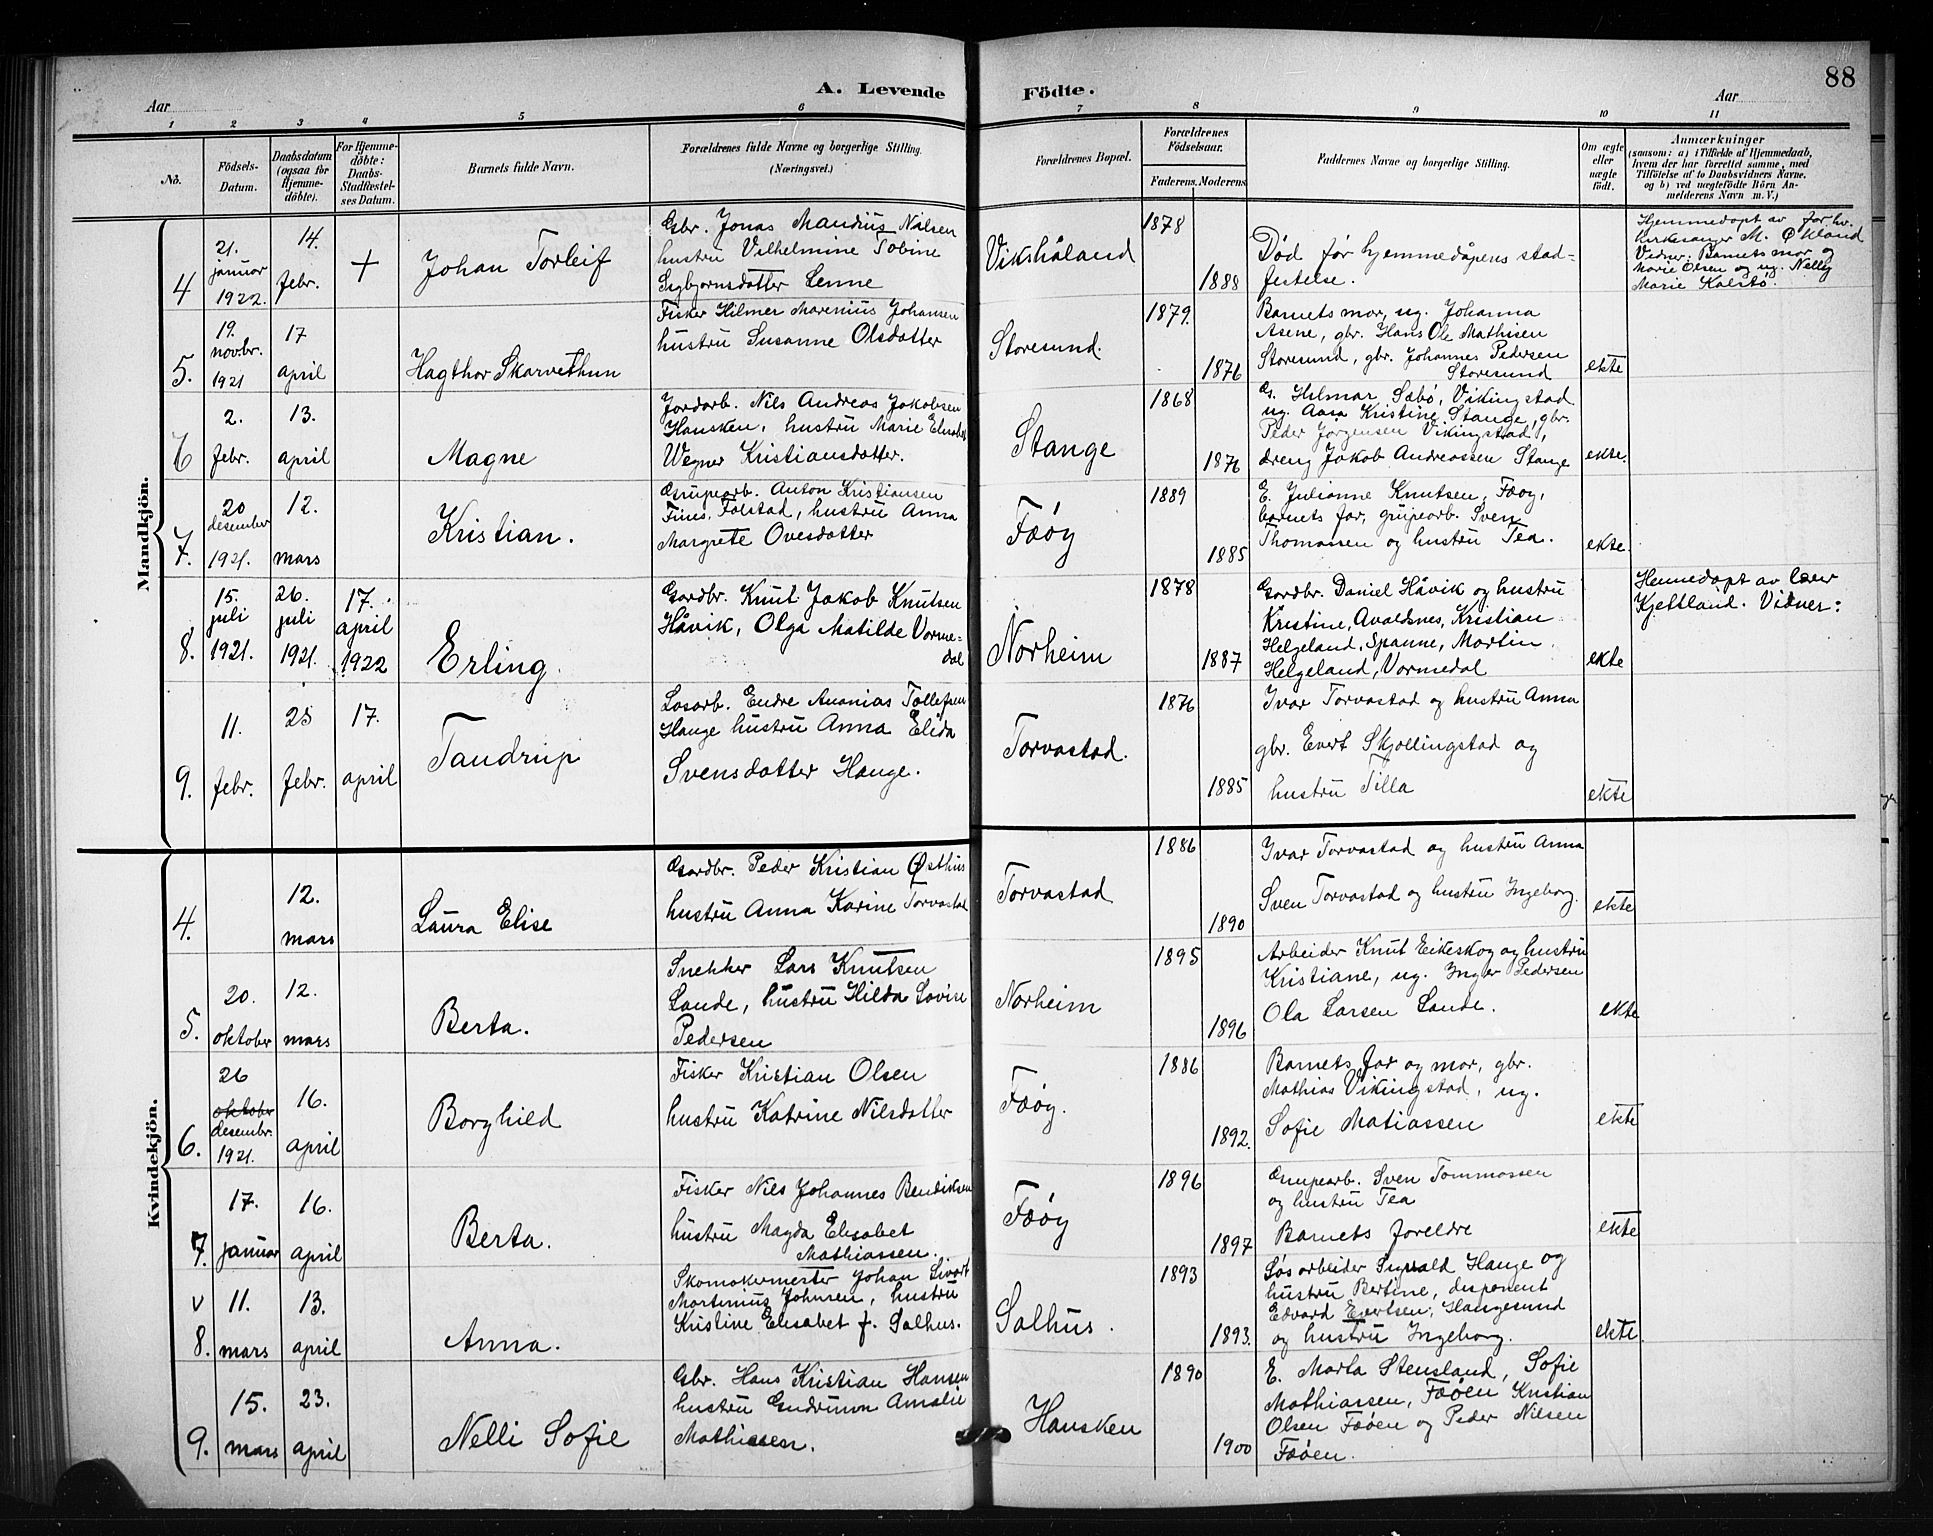 A. Levende Födte.
88
Aar
Aar
1 2 3 4 5 6 7 8 9 10 11
No.
Födsels-Datum.
Daabsdatum (ogsaa for Hjemme-döbte).
For Hjemme-döbte: Daabs-Stadfæstel-ses Datum.
Barnets fulde Navn.
Forældrenes fulde Navne og borgerlige Stilling.
(Næringsvei.)
Forældrenes Bopæl.
Forældrenes Födselsaar.
Faderens. Moderens.
Faddernes Navne og borgerlige Stilling.
Om ægte eller uægte födt.
Anmærkninger
(saasom: a) i Tilfælde af Hjemmedaab,
hvem der har forrettet samme, med
Tilföielse af to Daabsvidners Navne.
og b) ved uægtefödte Börn An-
melderens Navn m. V.)
Mandkjön.
4
21. januar 1922.
14. febr.
+
Johan Torleif
Gbr. Jonas Mandius Nilsen
hustru Vilhelmine Tobine
Sigbjornsdatter Lenne
Vikshåland
1878
1888
Død før hjemmedåpens stad-
festelse.
Hjemmedøpt av forhv.
Kirkesanger M. Økland
Vidner: Barnets mor og
Marie Olsen og ug. Nelly
Marie Kolstø.
5.
19. novbr. 1921
17 april
Hagthor Skarvethun
Fisker Hilmer Marenius Johansen
hustru Susanne Olsdatter
Storesund.
1879.
1876
Barnets mor, ug. Johanna
Asene, gbr. Hans Ole Mathisen
Storesund, gbr. Johannes Pedersen
Storesund
ekte
6
2. febr.
13. april
Magne
Jordarb. Nils Andreas Jakobsen
Hansken, hustru Marie Elisabet
Wegner Kristiansdatter.
Stange
1868
1876
G. Hilmar Sæbø, Vikingstad
ug. Aasa Kristine Stange, gbr.
Peder Jørgensen Vikingstad,
dreng Jakob Andreassen Stange
ekte.
7.
20 desember 1921.
12. mars
Kristian.
Grupearb. Anton Kristiansen
Fines, Følstad, hustru Anna
Margrete Ovesdatter
Føøy
1889
1885
E. Julianne Knutsen, Føoy,
barnets far, grupearb. Sven
Thomassen og hustru Tea.
ekte.
8.
15. juli 1921.
26. juli 1921.
17. april 1922
Erling.
Gardbr. Knut Jakob Knutsen
Håvik, Olga Matilde Vorme-
dal
Norheim
1878
1887
Gardbr. Daniel Håvik og hustru
Kristine, Avaldsnes, Kristian
Helgeland, Spanne, Martin
Helgeland, Vormedal
ekte
Hemmedøpt av lærer
Kjetland. Vidner:
9.
11. febr.
25 febr.
17. april
Tandrup
Losarb. Endre Ananias Tollefsen
Hauge hustru Anna Elida
Svensdatter Hauge.
Torvastad.
1876
1885
Ivar Torvastad og hustru Anna
gbr. Evert Skjollingstad og
hustru Tilla
ekte
Kvindekjön.
4.
12. mars
Laura Elise
Gardbr. Peder Kristian Østhus
hustru Anna Karine Torvastad
Torvastad
1886
1890
Ivar Torvastad og hustru Anna
Sven Torvastad og hustru Ingeborg.
ekte
5.
20. oktober
12. mars
Berta.
Snekker Lars Knutsen
Lande, hustru Hilda Lovise
Pedersen
Norheim
1895
1896
Arbeider Knut Eikeskog og hustru
Kristiane, ug. Inger Pedersen
Ola Larsen Lande.
ekte
6.
26 oktober desembr. 1921.
16. april
Borghild
Fisker Kristian Olsen
hustru Katrine Nilsdatter
Føøy.
1886
1892.
Barnets far og mor, gbr.
Mathias Vikingstad, ug.
Sofie Matiassen
ekte
7.
17. januar
16. april
Berta.
Fisker Nils Johannes Bendiksen
hustru Magda Elisabet
Mathiassen.
Føøy
1896
1897
Grupearb. Sven Tommassen
og hustru Tea
Barnets foreldre
ekte
v
8.
11. mars
13. april
Anna.
Skomakermester Johan Sivart
Martinius Johnsen, hustru
Kristine Elisabet f. Salhus.
Salhus.
1893
1893.
Løsarbeider Sigvald Hauge og
hustru Bertine, disponent
Edvard Evertsen, Haugesund
og hustru Ingeborg.
ekte
9.
15. mars
23. april
Nelli Sofie
Gbr. Hans Kristian Hansen
hustru Gudrunn Amalie
Mathiesen.
Hansken
1890
1900
E. Marta Stensland, Sofie
Mathiassen, Føøen Kristian
Olsen Føøen og Peder Nilsen
Føøen.